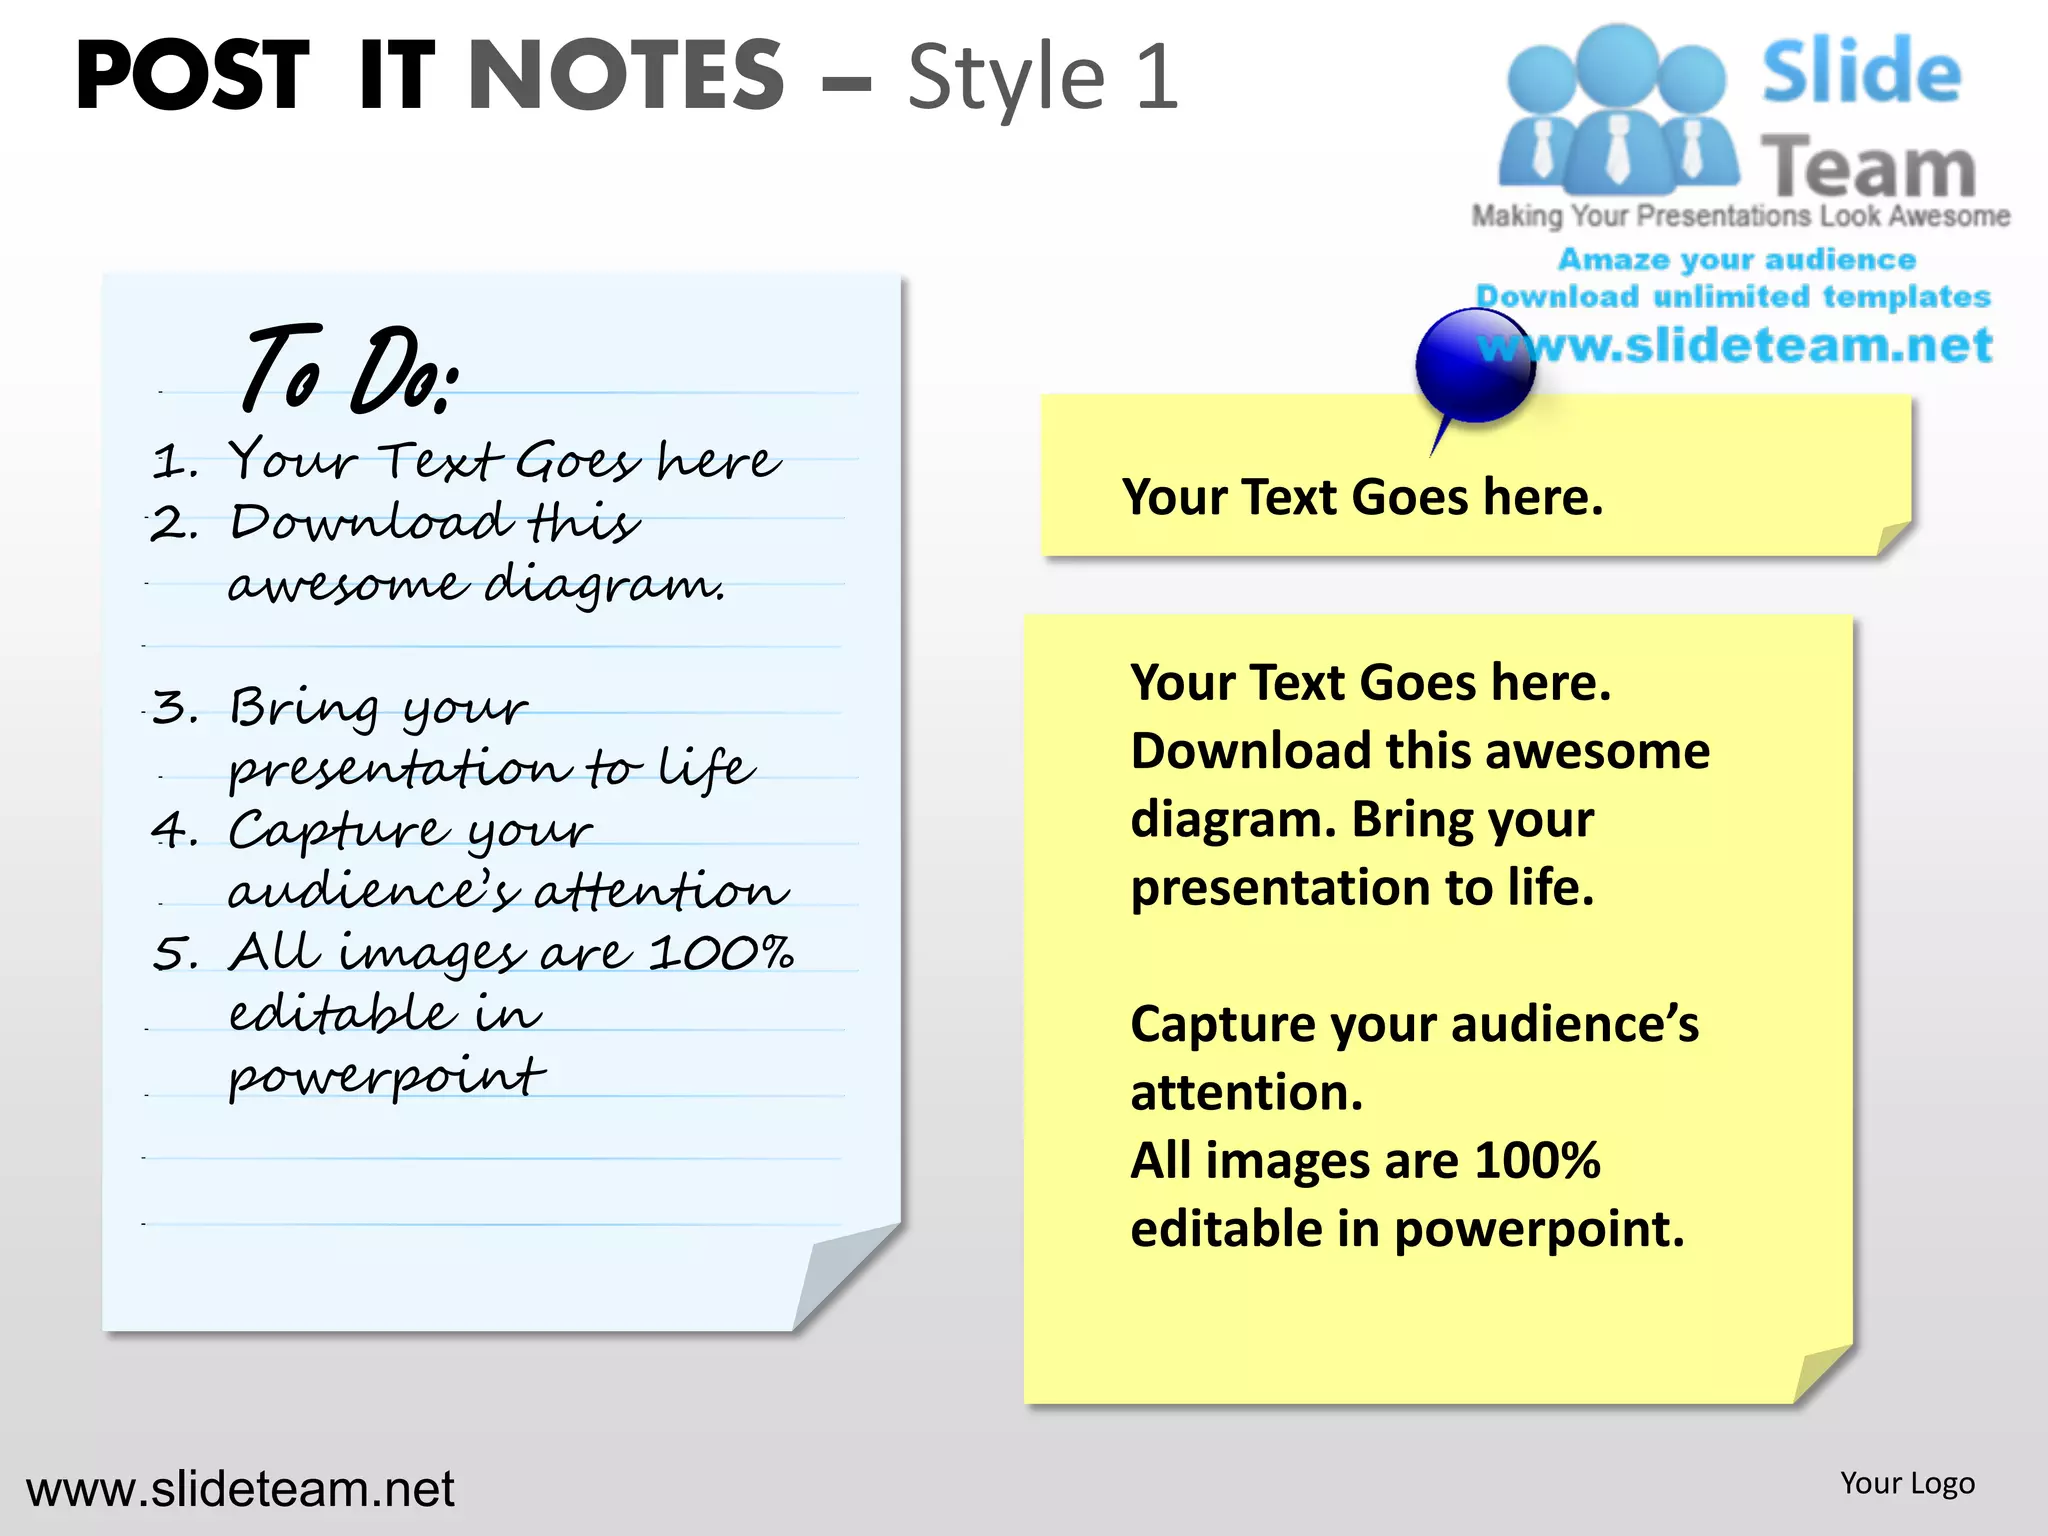 POST IT NOTES – Style 1
Slide
Team
Making Your Presentations Look Awesome
Amaze your audience
Download unlimited templates
www.slideteam.net
To Do:
1. Your Text Goes here
2. Download this
awesome diagram.
3. Bring your
presentation to life
4. Capture your
audience’s attention
5. All images are 100%
editable in
powerpoint
Your Text Goes here.
Your Text Goes here.
Download this awesome
diagram. Bring your
presentation to life.
Capture your audience’s
attention.
All images are 100%
editable in powerpoint.
www.slideteam.net
Your Logo